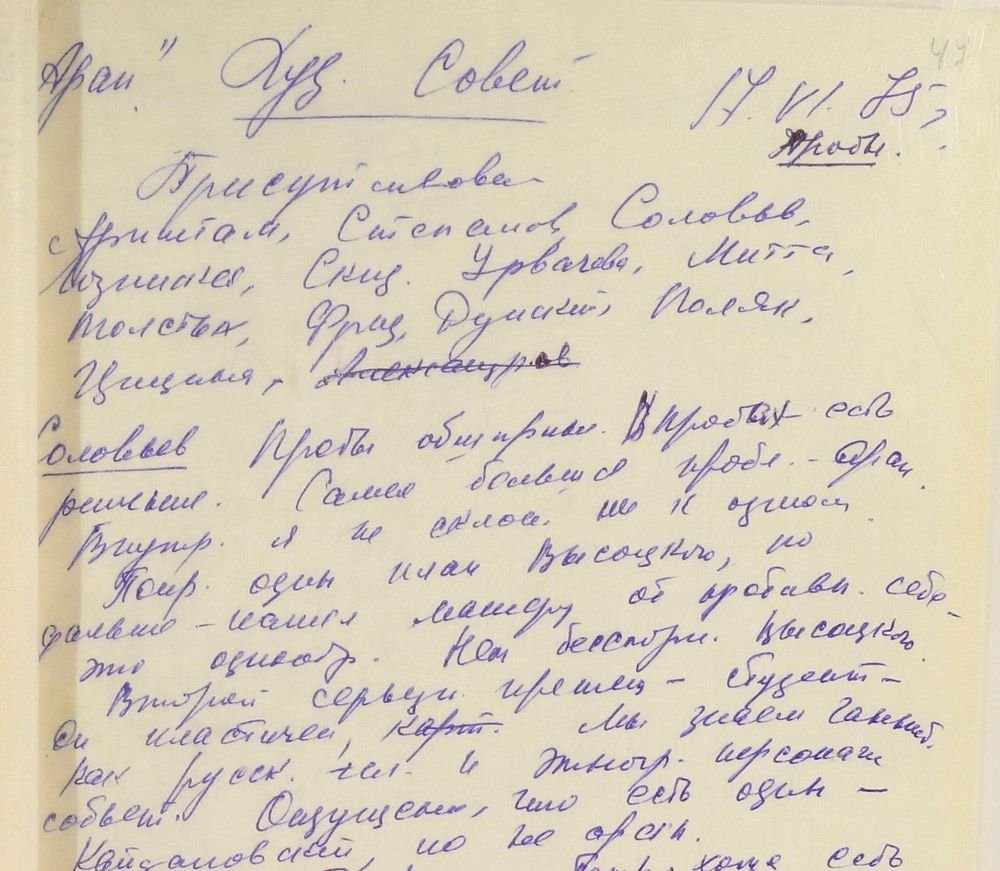 Арап" Худ. Совет
44
17.VI.75г.
Пробы.
Присутствовал
Арнштам, Степанов, Соловьев,
Лозинская, Скид. Урвачева, Митта,
Толстых, Фрид, Дунский, Поляк,
Цицина, Александров
Соловьев Пробы обширные. В пробах есть
решение. Самая большая пробл. - Арап.
Внутр. я не склон. ни к одном.
Понр. один план Высоцкого, но
дальше - нашел манеру от
это однообр. Нет бесспорн. Высоцкого
Второй серьезн. - студент -
Он пластичен, карт. Мы знаем Ганнибл.
как русск. чел. и этногр. персонаж
Ощущение, что есть один -
Кайдановский, но не арап.
есть